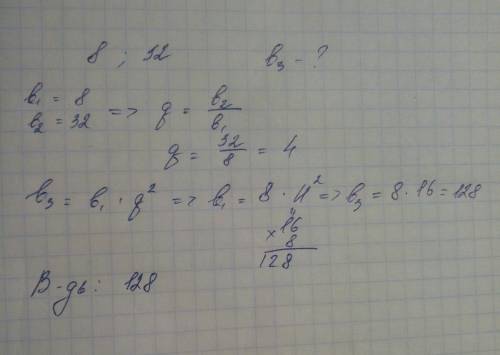 8 ; 32 b₃ - ?
b₁ = 8
b₂ = 32 => q = b₂/b₁
q = 32/8 = 4
b₃ = b₁ · q² => b₁ = 8 · 4² => b₃ = 8 · 16 = 128
× 16
8
128
В-дь: 128